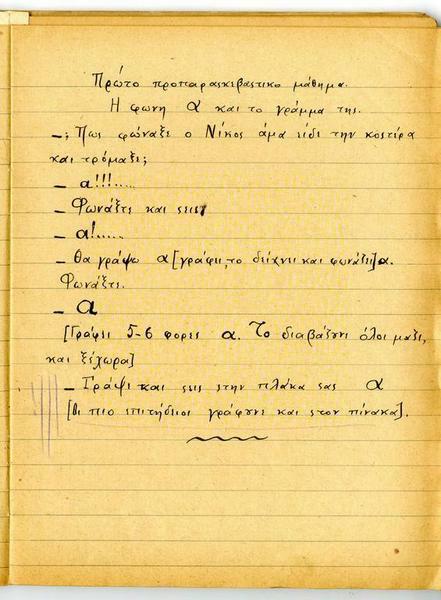 Πρώτο προπαρασκεβαστικο μάθημα.
Η φωνη α και το γράμμα της.
–; Πως φώναξε ο Νίκος άμα είδε την κοστίρα
και τρόμαξε;
– α!!!.....
– Φωνάξτε και σεις
– α!.....
– Θα γράψω α [γράφει, το δείχνει και φωνάζει] α.
Φωνάξτε.
– α
[Γράφει 5-6 φορες α. Το διαβάζουνε όλοι μαζι,
και ξέχωρα]
– Γράψτε και σεις στην πλάκα σας α
[Οι πιο επιτήδειοι γράφουνε και στον πίνακα].